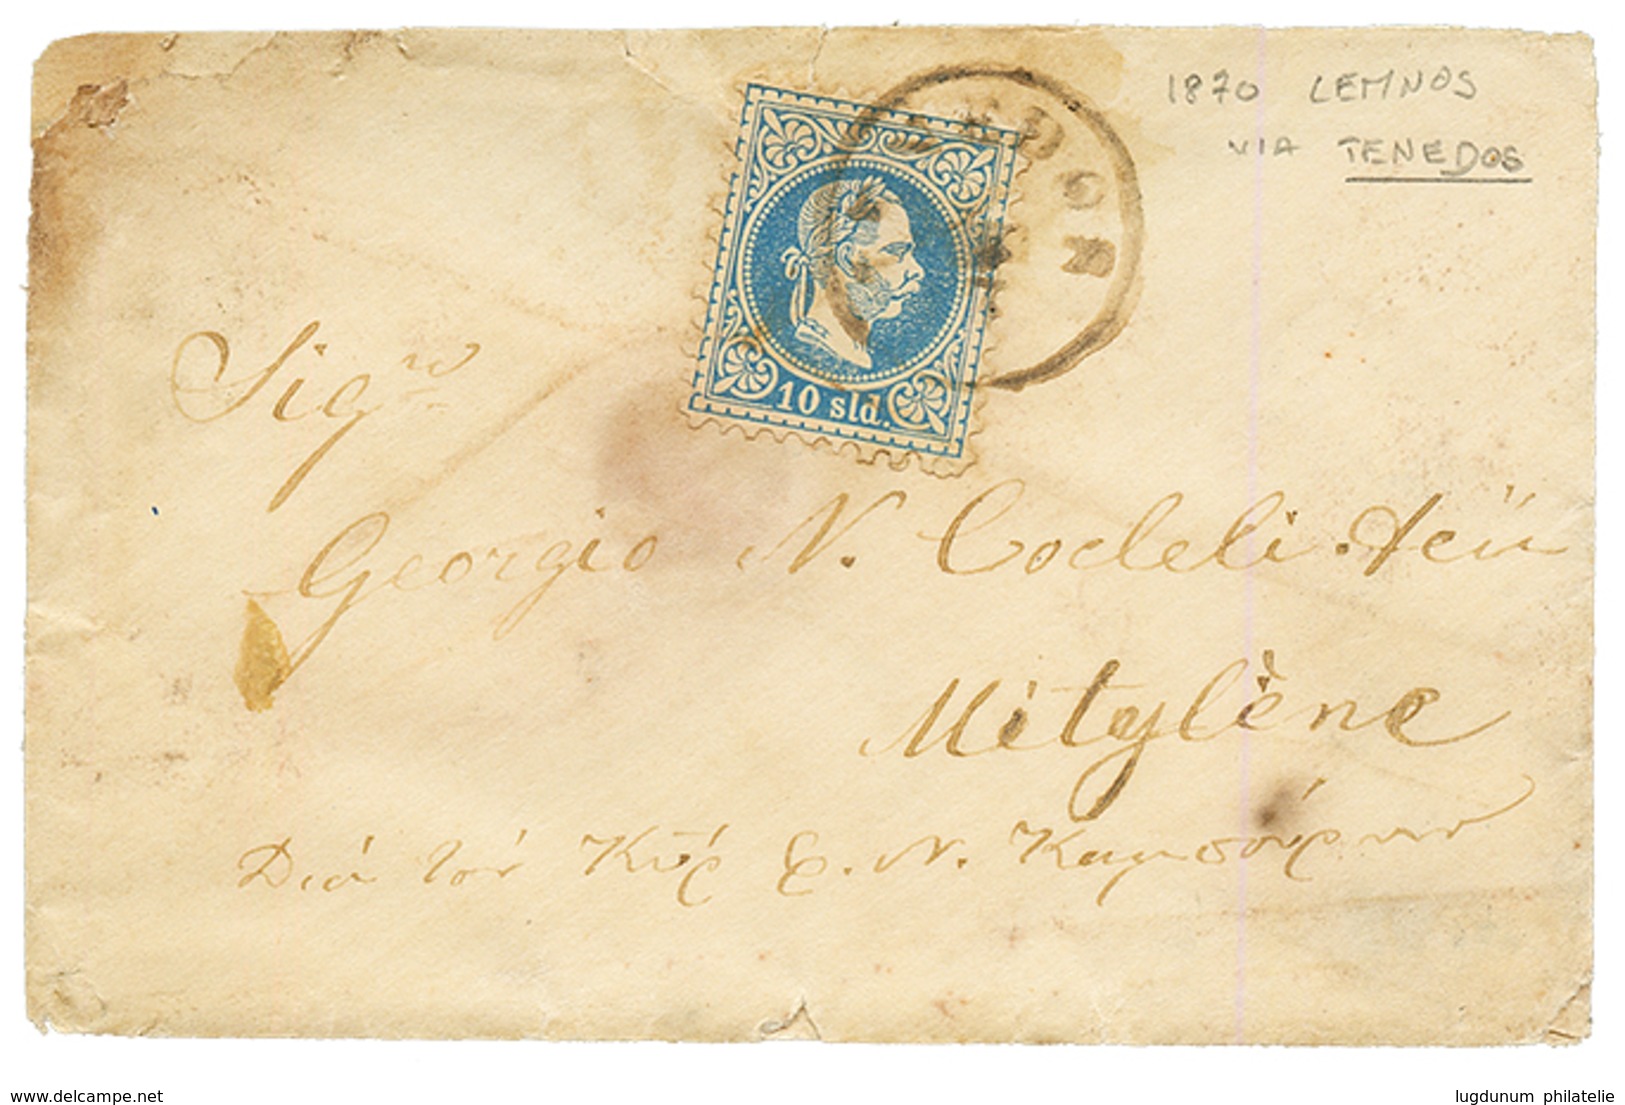 1870 LEMNOS
VIA TENEDOS
10 sld.
Sigr
Georgio N. Codeli
Mitylène
Διά τον Κύρ N.
www.delcampe.net
lugdunum philatelie